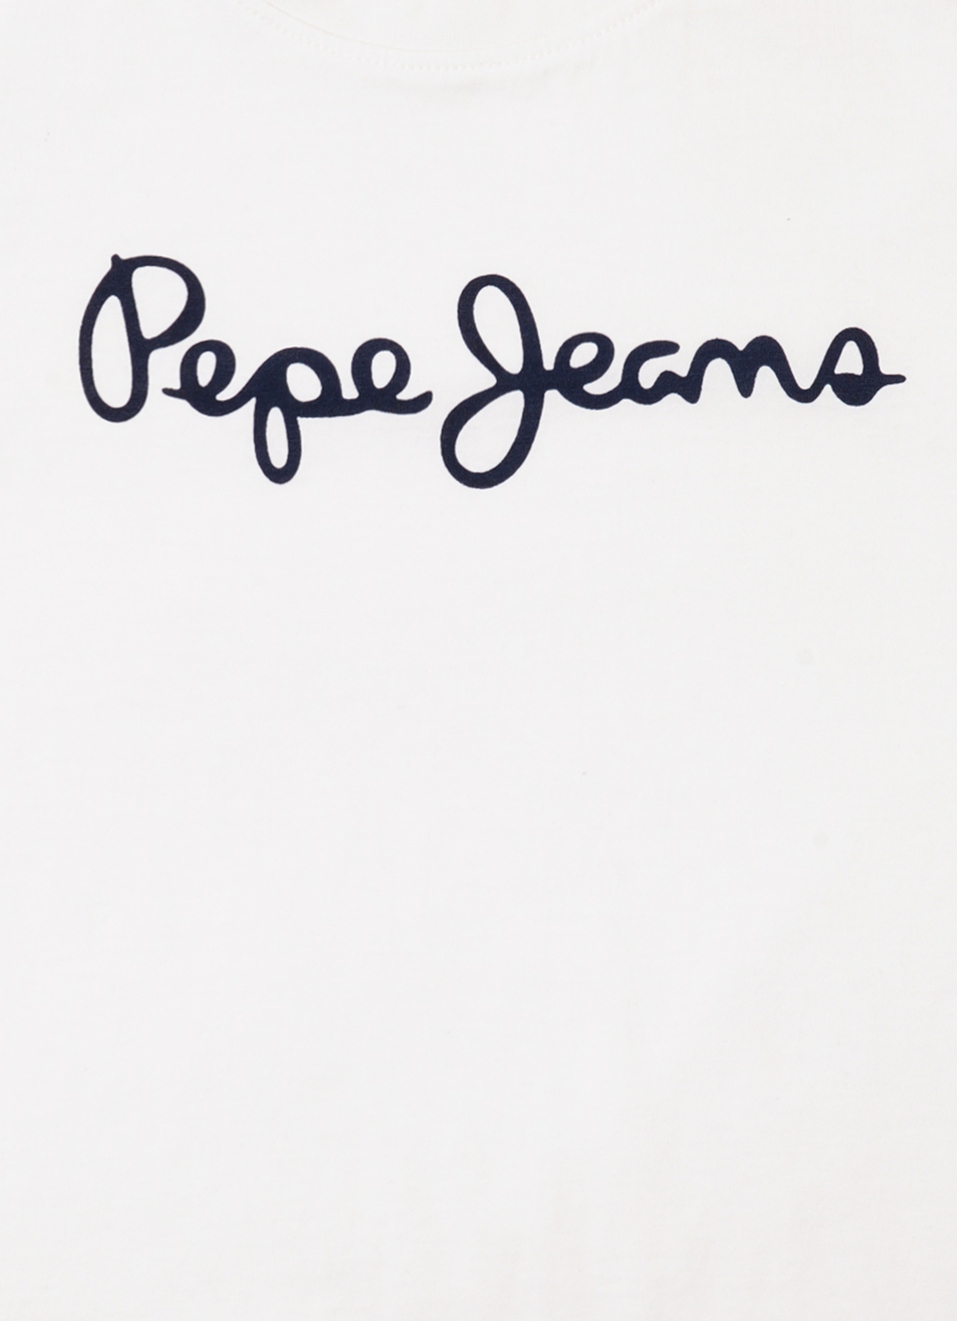 Pepe Jeans